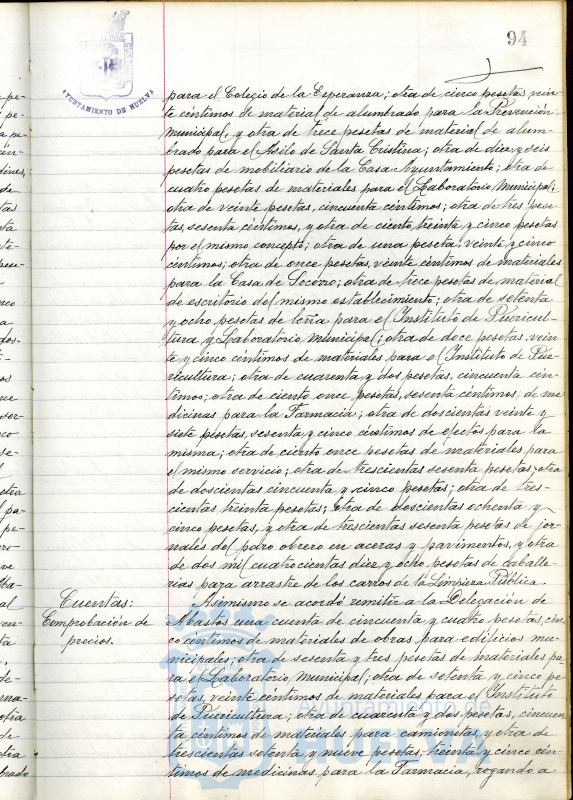 94
AYUNTAMIENTO DE HUELVA
para el Colegio de la Esperanza; otra de cinco pesetas vein-
te céntimos de material de alumbrado para la Prevención
municipal, y otra de trece pesetas de material de alum-
brado para el Asilo de Santa Cristina; otra de diez y seis
pesetas de mobiliario de la Casa Ayuntamiento; otra de
cuatro pesetas de materiales para el Laboratorio Municipal;
otra de veinte pesetas, cincuenta céntimos; otra de tres pese-
tas sesenta céntimos, y otra de ciento treinta y cinco pesetas
por el mismo concepto; otra de una peseta veinte y cinco
céntimos; otra de once pesetas, veinte céntimos de materiales
para la Casa de Socorro; otra de trece pesetas de material
de escritorio del mismo establecimiento; otra de setenta
y ocho pesetas de leña para el Instituto de Puericul-
tura y Laboratorio Municipal; otra de doce pesetas vein-
te y cinco céntimos de materiales para el Instituto de Pue-
ricultura; otra de cuarenta y dos pesetas, cincuenta cén-
timos; otra de ciento once pesetas, sesenta céntimos de me-
dicinas para la Farmacia; otra de doscientas veinte y
siete pesetas, sesenta y cinco céntimos de efectos para la
misma; otra de ciento once pesetas de materiales para
el mismo servicio; otra de trescientas sesenta pesetas; otra
de doscientas cincuenta y cinco pesetas; otra de tres-
cientas treinta pesetas; otra de doscientas ochenta y
cinco pesetas, y otra de trescientas sesenta pesetas de jor-
nales del paro obrero en aceras y pavimentos, y otra
de dos mil cuatrocientas diez y ocho pesetas de caballe-
rías para arrastre de los carros de la Limpieza Pública.
Cuentas:
Comprobación de
precios.
Asimismo se acordó remitir a la Delegación de
Abastos una cuenta de cincuenta y cuatro pesetas, cin-
co céntimos de materiales de obras para edificios mu-
nicipales; otra de sesenta y tres pesetas de materiales pa-
ra el Laboratorio Municipal; otra de setenta y cinco pe-
setas, veinte céntimos de materiales para el Instituto
de Puericultura; otra de cuarenta y dos pesetas, cincuen-
ta céntimos de materiales para camionetas, y otra de
trescientas setenta y nueve pesetas, treinta y cinco cén-
timos de medicinas para la Farmacia, rogando a
Ayuntamiento de